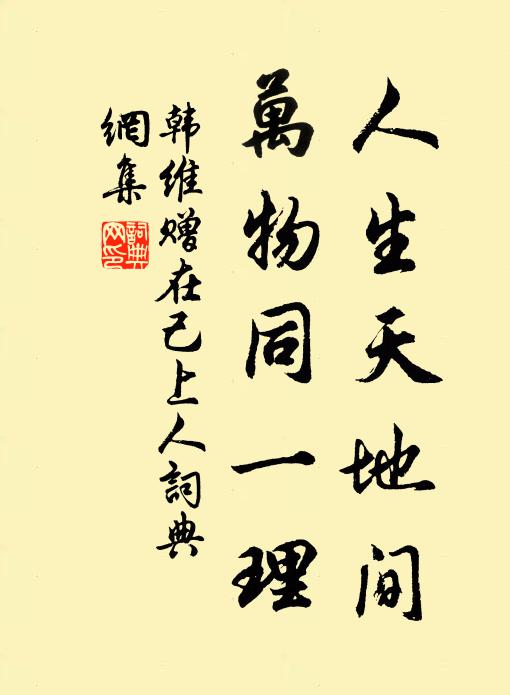 人生天地间
萬物同一理
韩维赠在己上人詞典
網集
詞典
网印